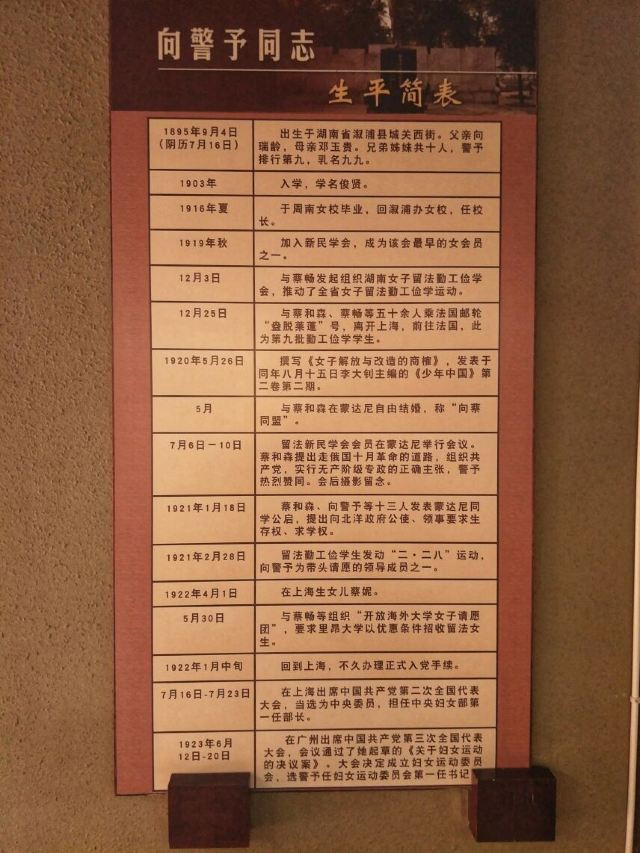 向警予同志
生平简表
1895年9月4日
（阴历7月16日）
出生于湖南省溆浦县城关西街。父亲向
瑞龄，母亲邓玉贵。兄弟姊妹共十人，警予
排行第九，乳名九九。
1903年
入学，学名俊贤。
1916年夏
于周南女校毕业，回溆浦办女校，任校
长。
1919年秋
加入新民学会，成为该会最早的女会员
之一。
12月3日
与蔡畅发起组织湖南女子留法勤工俭学
会，推动了全省女子留法勤工俭学运动。
12月25日
与蔡和森、蔡畅等五十余人乘法国邮轮
“盎脱莱蓬”号，离开上海，前往法国，此
为第九批勤工俭学学生。
1920年5月26日
撰写《女子解放与改造的商榷》，发表于
同年八月十五日李大钊主编的《少年中国》第
二卷第二期。
5月
与蔡和森在蒙达尼自由结婚，称“向蔡
同盟”。
7月6日－10日
留法新民学会会员在蒙达尼举行会议。
蔡和森提出走俄国十月革命的道路，组织共
产党，实行无产阶级专政的正确主张，警予
热烈赞同。会后摄影留念。
1921年1月18日
蔡和森、向警予等十三人发表蒙达尼同
学公启，提出向北洋政府公使、领事要求生
存权、求学权。
1921年2月28日
留法勤工俭学生发动“二·二八”运动，
向警予为带头请愿的领导成员之一。
1922年4月1日
在上海生女儿蔡妮。
5月30日
与蔡畅等组织“开放海外大学女子请愿
团”，要求里昂大学以优惠条件招收留法女
生。
1922年1月中旬
回到上海，不久办理正式入党手续。
7月16日-7月23日
在上海出席中国共产党第二次全国代表
大会，当选为中央委员，担任中央妇女部第
一任部长。
1923年6月
12日-20日
在广州出席中国共产党第三次全国代表
大会，会议通过了她起草的《关于妇女运动
的决议案》。大会决定成立妇女运动委员
会，选警予任妇女运动委员会第一任书记